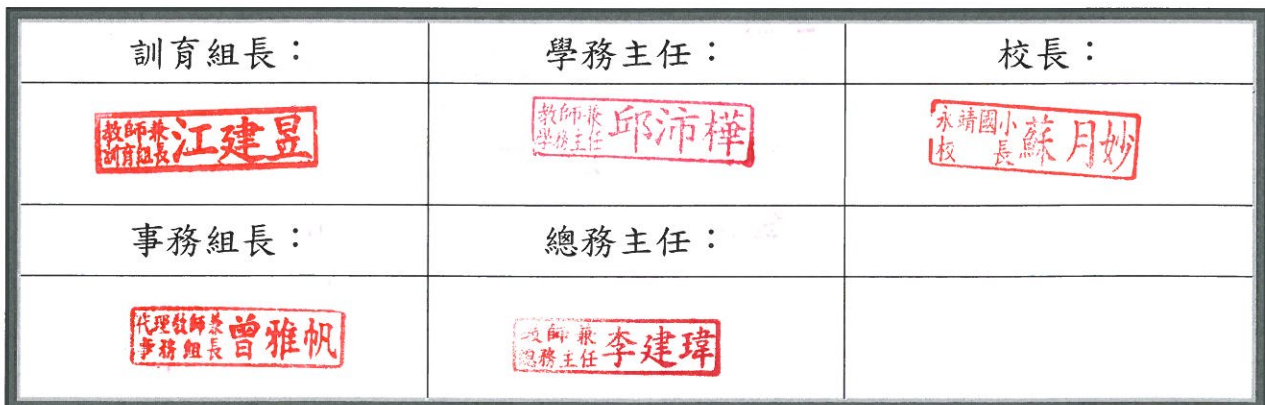 訓育組長：
學務主任：
校長：
教師兼
訓育組長
江建昱
教師兼
學務主任
邱沛樺
永靖國小
校長
蘇月妙
事務組長：
總務主任：
代理教師兼
事務組長
曾雅帆
教師兼
總務主任
李建瑋